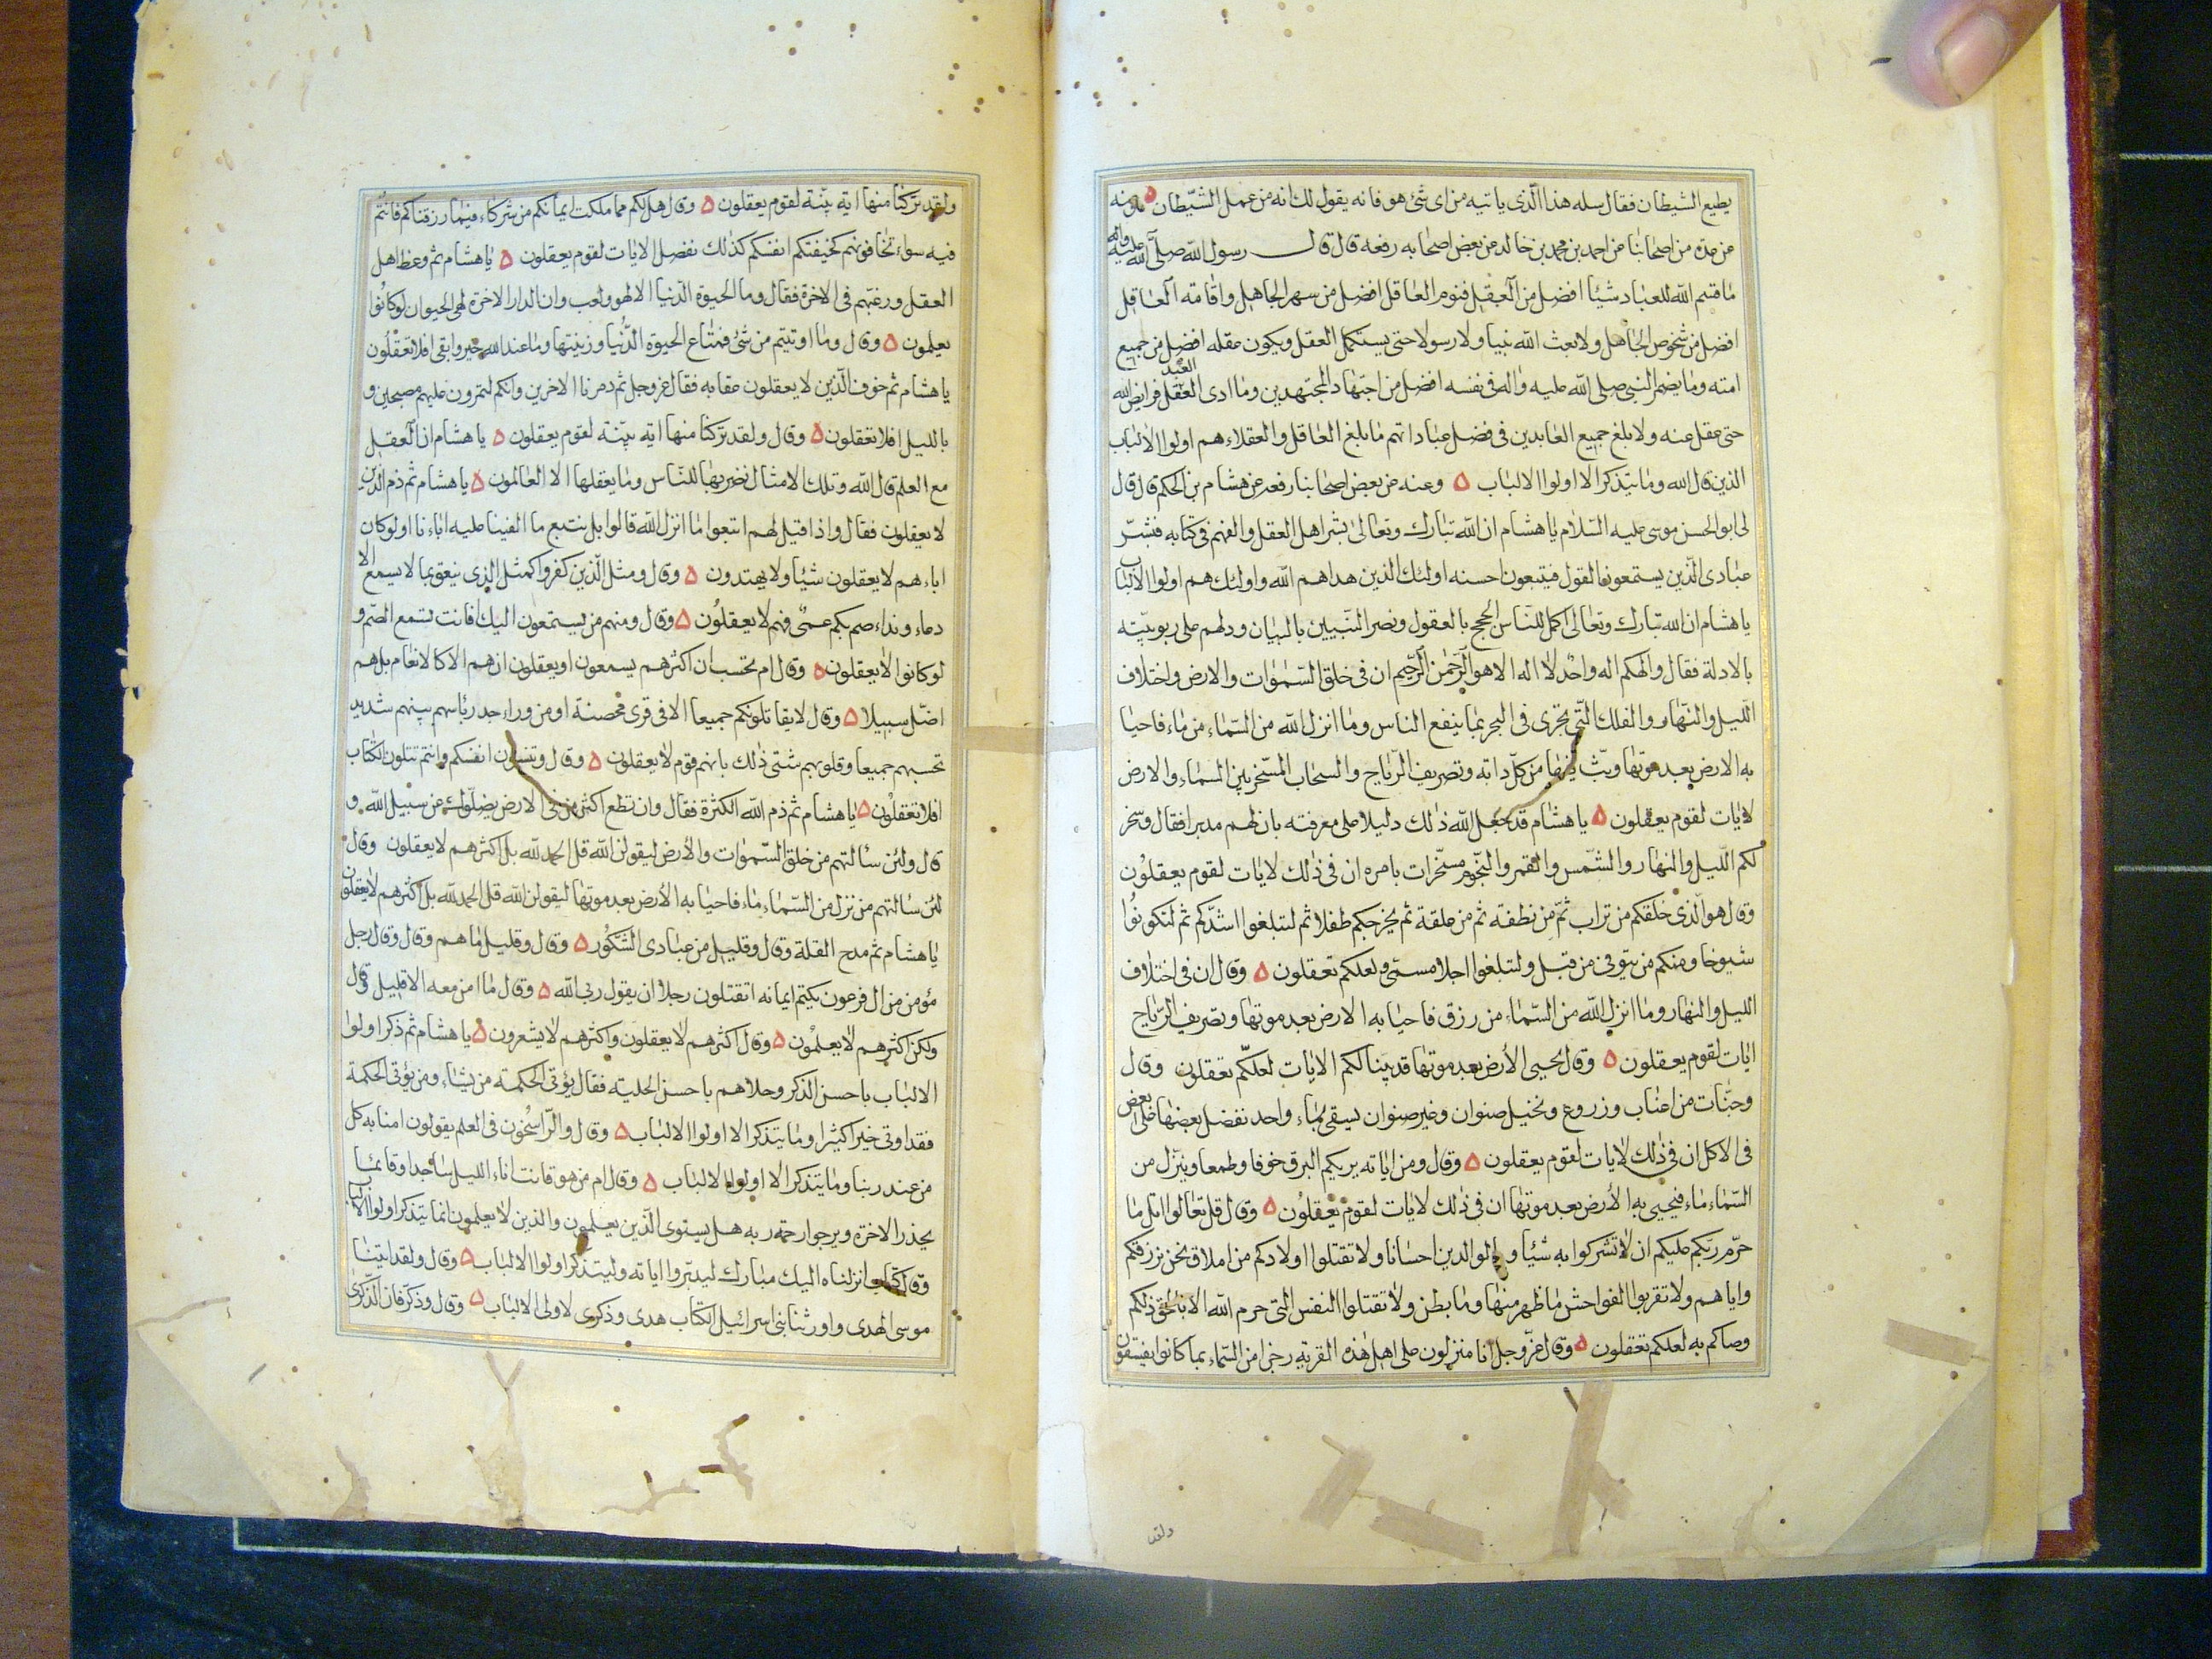 يطيع الشيطان فقال سله هذا الّذى ياتيه من اى شئ هو فانه يقول لك انه من عمل الشّيطان ه
عن عدة من اصحابنا عن احمد بن محمد بن خالد عن بعض اصحابه رفعه قال قال رسول الله صلى الله عليه واله
ما قسم الله للعباد شيئا افضل من العقل فنوم العاقل افضل من سهر الجاهل واقامة العاقل
افضل من شخوص الجاهل ولا بعث الله نبيا ولا رسولا حتى يستكمل العقل ويكون عقله افضل من جميع
امته وما يضمر النبى صلى الله عليه واله فى نفسه افضل من اجتهاد المجتهدين وما ادى العقل العبد فرايض الله
حتى عقل عنه ولا بلغ جميع العابدين فى فضل عباداتهم ما بلغ العاقل والعقلاء هم اولوا الالباب
الذين قال الله وما يتذكر الا اولوا الالباب ه وعنه عن بعض اصحابنا رفعه عن هشام بن الحكم قال قال
لى ابو الحسن موسى عليه السّلام يا هشام ان الله تبارك وتعالى بشر اهل العقل والفهم فى كتابه فبشّر
عبادى الّذين يستمعون القول فيتبعون احسنه اولئك الذين هداهم الله واولئك هم اولوا الالباب
يا هشام ان الله تبارك وتعالى اكمل للنّاس الحجج بالعقول ونصر النبيين بالبيان ودلهم على ربوبيّته
بالادلة فقال والهكم اله واحد لا اله الا هو الرّحمن الرّحيم ان فى خلق السّموات والارض واختلاف
الليل والنّهار والفلك الّتى تجرى فى البحر بما ينفع الناس وما انزل الله من السّماء من ماء فاحيا
به الارض بعد موتها وبثّ فيها من كلّ دابّة وتصريف الرّياح والسحاب المسّخر بين السماء والارض
لايات لقوم يعقلون ه يا هشام قد جعل الله ذلك دليلا على معرفته بان لهم مدبرا فقال وسخر
لكم الّليل والنهار والشّمس والقمر والنّجوم مسخّرات بامره ان فى ذلك لايات لقوم يعقلون
وقال هو الّذى خلقكم من تراب ثمّ من نطفة ثم من علقة ثم يخرجكم طفلا ثم لتبلغوا اشدّكم ثم لتكونوا
شيوخا ومنكم من يتوفى من قبل ولتبلغوا اجلا مسمّى ولعلكم تعقلون ه وقال ان فى اختلاف
الليل والنهار وما انزل الله من السّماء من رزق فاحيا به الارض بعد موتها وتصريف الرّياح
ايات لقوم يعقلون ه وقال يحيى الأرض بعد موتها قد بينا لكم الايات لعلكّم تعقلون وقال
وجنّات من اعناب وزروع ونخيل صنوان وغير صنوان يسقى بماء واحد نفضل بعضها على بعض
فى الاكل ان فى ذلك لايات لقوم يعقلون ه وقال ومن اياته يريكم البرق خوفا وطمعا وينزّل من
السّماء ماء فيحيى به الأرض بعد موتها ان فى ذلك لايات لقوم يعقلون ه وقال قل تعالوا اتل ما
حرّم ربّكم عليكم ان لا تشركوا به شيئا وبالوالدين احسانا ولا تقتلوا اولادكم من املاق نحن نرزقكم
واياهم ولا تقربوا الفواحش ما ظهر منها وما بطن ولا تقتلوا النفس الّتى حرم الله الا بالحق ذلكم
وصاكم به لعلكم تعقلون ه وقال عزّ وجل انا منزلون على اهل هذه القرية رجزا من السّماء بما كانوا يفسقون
ولقد
ولقد تركنا منها اية بيّنة لقوم يعقلون ه وقال هل لكم مما ملكت ايمانكم من شركاء فيما رزقناكم فانتم
فيه سواء تخافونهم كخيفتكم انفسكم كذلك نفصل الايات لقوم يعقلون ه يا هشام ثم وعظ اهل
العقل ورغبّهم فى الاخرة فقال وما الحيوة الدّنيا الا لهو ولعب وان الدار الاخرة لهى الحيوان لو كانوا
يعلمون ه وقال وما اوتيتم من شئ فمتاع الحيوة الدّنيا وزينتها وما عند الله خير وابقى افلا تعقلون
يا هشام ثم خوف الّذين لا يعقلون عقابه فقال عز وجل ثم دمرنا الاخرين وانكم لتمرون عليهم مصبحين و
بالليل افلا تعقلون ه وقال ولقد تركنا منها اية بيّنة لقوم يعقلون ه يا هشام ان العقل
مع العلم قال الله وتلك الامثال نضربها للنّاس وما يعقلها الا العالمون ه يا هشام ثم ذم الّذين
لا يعقلون فقال واذا قيل لهم اتبعوا ما انزل الله قالوا بل نتبع ما الفينا عليه اباءنا اولو كان
اباءهم لا يعقلون شيئا ولا يهتدون ه وقال ومثل الّذين كفروا كمثل الذى ينعق بما لا يسمع الا
دعاء ونداء صم بكم عمى فهم لا يعقلون ه وقال ومنهم من يستمعون اليك افانت تسمع الصّم و
لو كانوا لا يعقلون ه وقال ام تحسب ان اكثرهم يسمعون او يعقلون ان هم الا كالانعام بل هم
اضّل سبيلا ه وقال لا يقاتلونكم جميعا الا فى قرى محصنة او من وراء جدر باسهم بينهم شديد
تحسبهم جميعا وقلوبهم شتى ذلك بانهم قوم لا يعقلون ه وقال وتنسون انفسكم وانتم تتلون الكتاب
افلا تعقلون ه يا هشام ثم ذم الله الكثرة فقال وان تطع اكثر من فى الارض يضلّوك عن سبيل الله و
قال ولئن سألتهم من خلق السّموات والأرض ليقولن الله قل الحمد لله بل اكثرهم لا يعقلون وقال
لئن سالتهم من نزل من السّماء ماء فاحيا به الأرض بعد موتها ليقولن الله قل الحمد لله بل اكثرهم لا يعقلون
يا هشام ثم مدح القلة وقال وقليل من عبادى الشّكور ه وقال وقليل ما هم وقال وقال رجل
مؤمن من ال فرعون يكتم ايمانه اتقتلون رجلا ان يقول ربى الله ه وقال وما امن معه الا قليل وقال
ولكن اكثرهم لا يعلمون ه وقال اكثرهم لا يعقلون واكثرهم لا يشعرون ه يا هشام ثم ذكر اولوا
الالباب باحسن الذكر وحلاهم باحسن الحلية فقال يؤتى الحكمة من يشاء ومن يؤتى الحكمة
فقد اوتى خيرا كثيرا وما يتذكر الا اولوا الالباب ه وقال والرّاسخون فى العلم يقولون امنا به كل
من عند ربنا وما يتذكر الا اولوا الالباب ه وقال ام من هو قانت اناء الليل ساجدا وقائما
يحذر الاخرة ويرجوا رحمة ربه هل يستوى الّذين يعلمون والذين لا يعلمون انما يتذكر اولوا الالباب
وقال كتاب انزلناه اليك مبارك ليدبّروا اياته وليتذكر اولوا الالباب ه وقال ولقد اتينا
موسى الهدى واورثنا بنى اسرائيل الكتاب هدى وذكرى لاولى الالباب ه وقال وذكّر فان الذّكرى